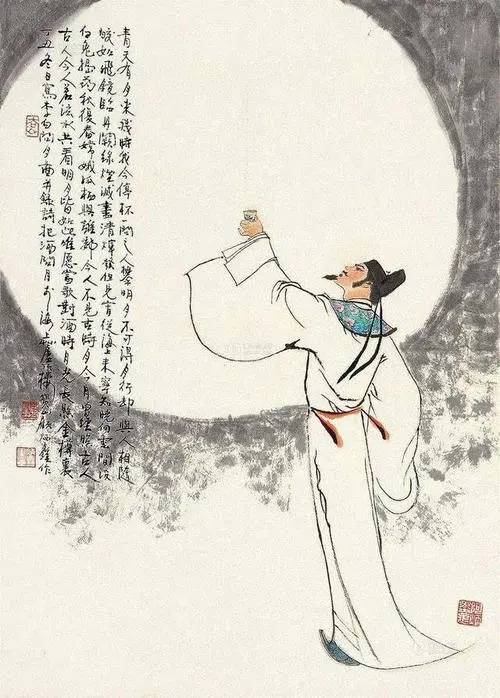 青天有月來幾時我今停杯一問之人攀明月不可得月行却與人相隨
皎如飛鏡臨丹闕綠煙滅盡清輝發但見宵從海上來寧知曉向雲間沒
白兔搗藥秋復春嫦娥孤栖與誰鄰今人不見古時月今月曾經照古人
古人今人若流水共看明月皆如此唯愿當歌對酒時月光長照金樽裏
丁丑冬日寫李白問月圖并錄詩把酒問月於海上 顧炳鑫作